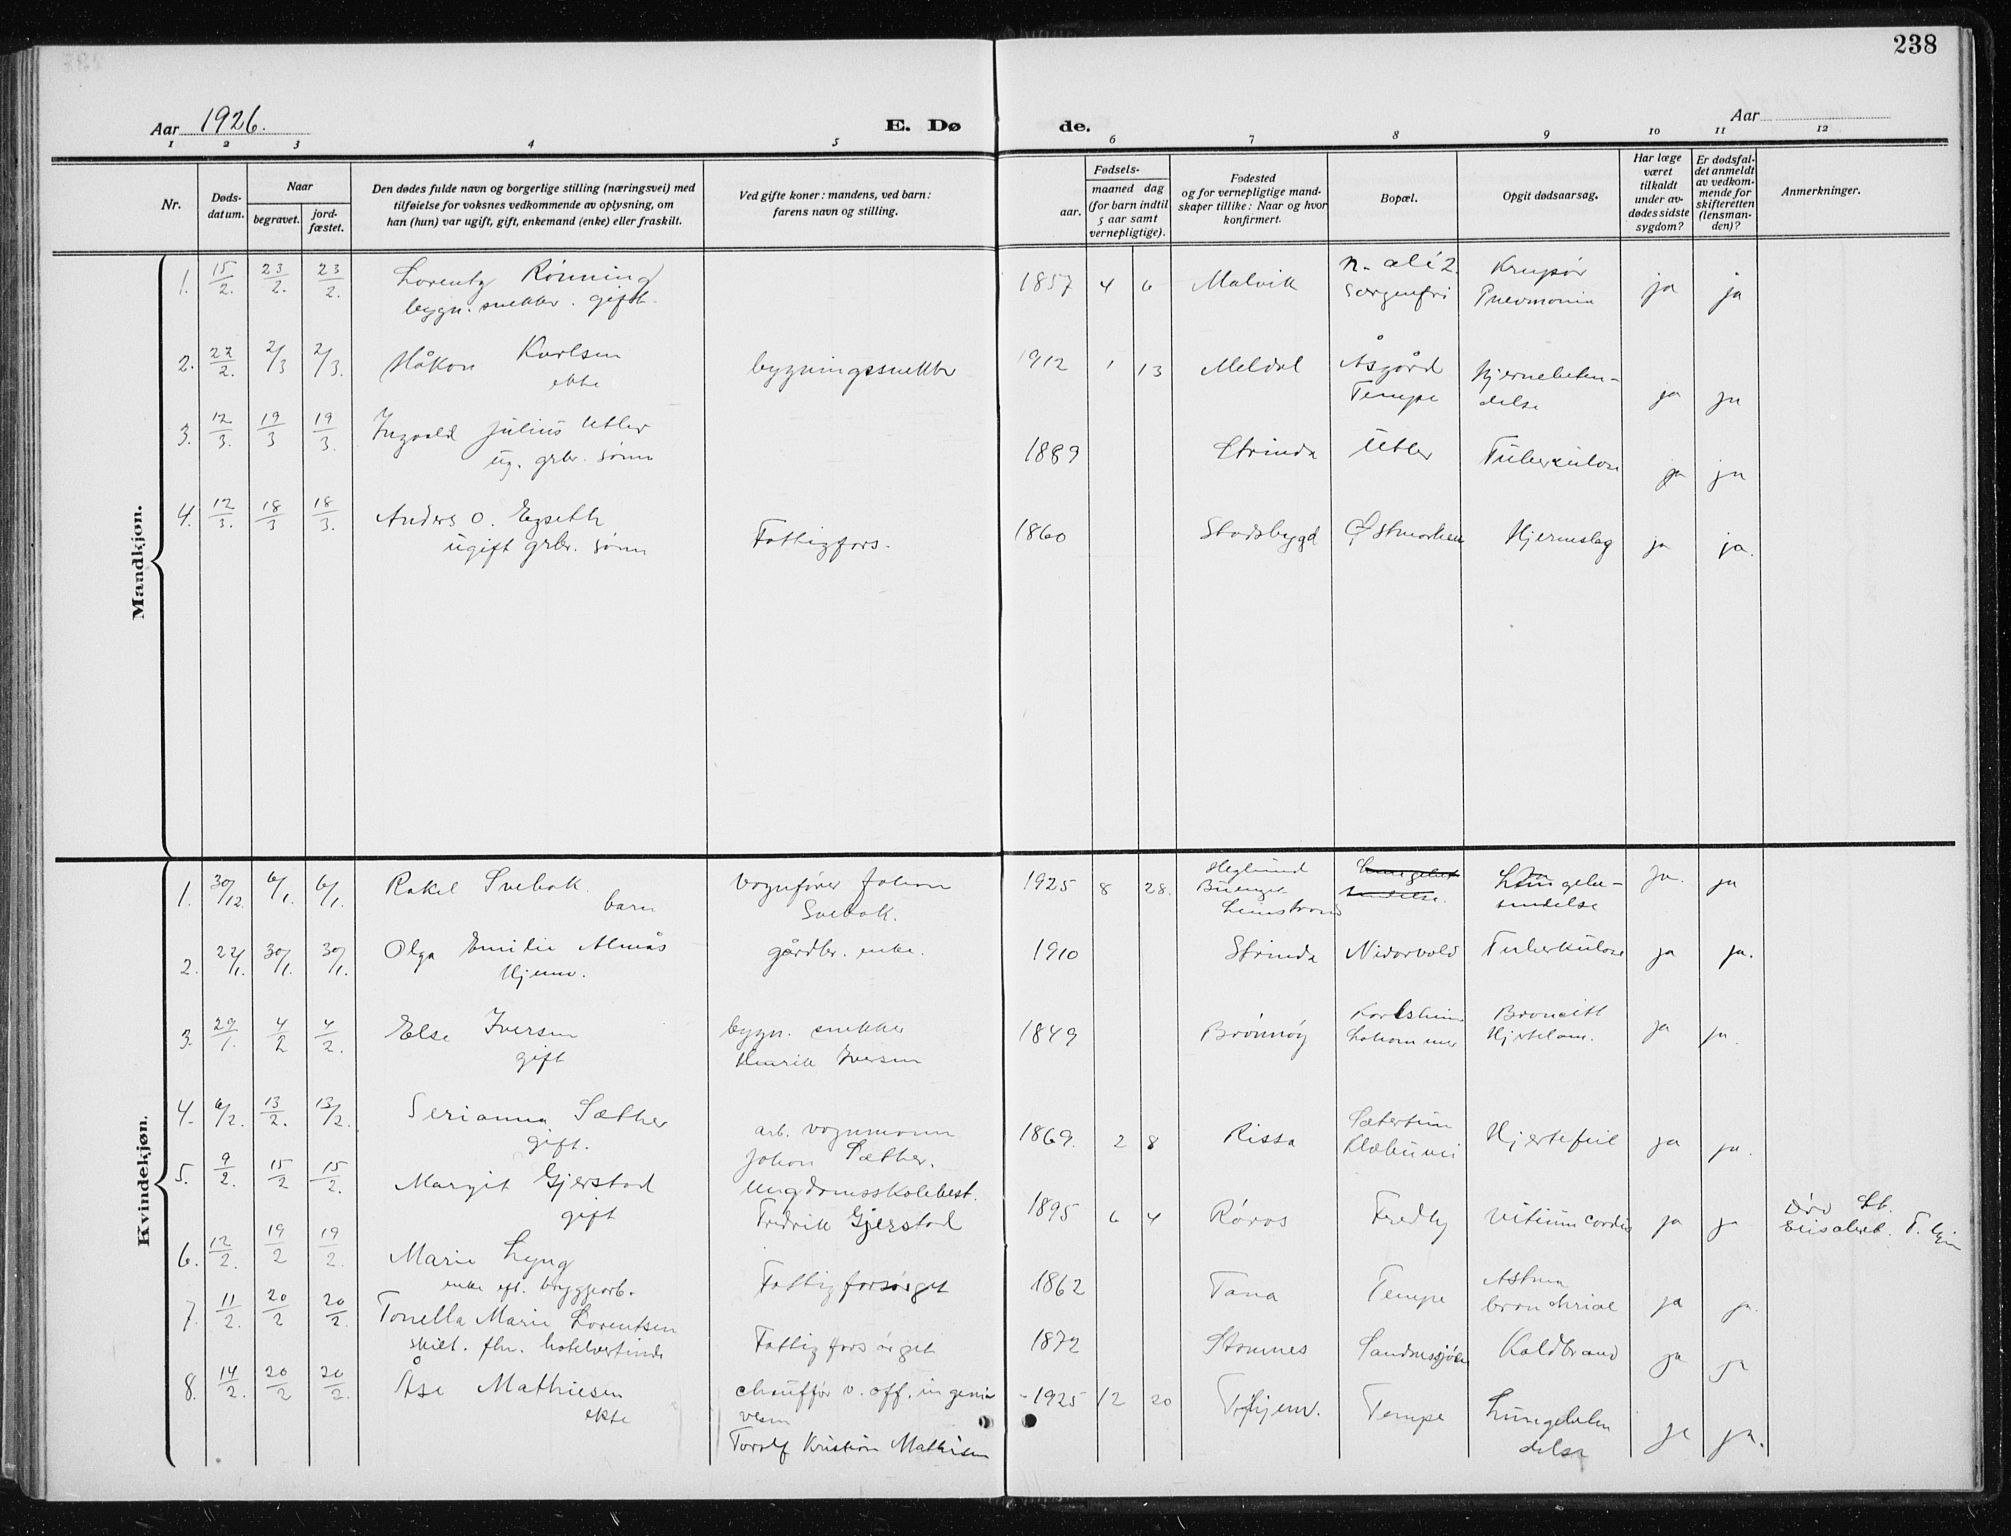 238
Aar 1926.
E. Dø de.
Aar
1 2 3 4 5 6 7 8 9 10 11 12
Nr.
Døds-
datum.
Naar
begravet.
jord-
fæstet.
Den dødes fulde navn og borgerlige stilling (næringsvei) med
tilføielse for voksnes vedkommende av oplysning, om
han (hun) var ugift, gift, enkemand (enke) eller fraskilt.
Ved gifte koner: mandens, ved barn:
farens navn og stilling.
Fødsels-
aar.
maaned dag
(for barn indtil
5 aar samt
vernepligtige).
Fødested
og for vernepligtige mand-
skaper tillike: Naar og hvor
konfirmert.
Bopæl.
Opgit dødsaarsag.
Har læge
været
tilkaldt
under av-
dødes sidste
sygdom?
Er dødsfal-
det anmeldt
av vedkom-
mende for
skifteretten
(lensman-
den)?
Anmerkninger.
Mandkjøn.
1. 15/2. 23/2. 23/2. Lorentz Rönning 1857 4 6 Malvik n. allé 2. Krupös ja ja
bygn. snekker. gift. Sorgenfri Pnevmonia
2. 22/2. 2/3 2/3. Håkon Karlsen bygningssnekker 1912 1 13 Meldal Åsgård Hjernebeten-
ekte Tempe delse ja ja
3. 12/3. 19/3 19/3 Ingvald Julius Utler 1889 Strinda Utler Tuberkulose ja ja
ug. grbr. sönn
4. 12/3. 18/3 18/3. Anders O. Egseth Fattigfors. 1860 Stadsbygd Østmarken Hjerneslag ja ja.
ugift grbr. sönn
Kvindekjøn.
1. 30/12. 6/1. 6/1. Rakel Svebak. vognfører Johan 1925 8 28. Heglund Lungebe- ja. ja
barn Svebak. Buenget
Leinstrand
2. 22/1. 30/1. 30/1. Olga Emilie Almås gårdbr. enke. 1910 Strinda Nidarvold Tuberkulose ja ja.
Hjemv.
3. 29/1. 4/2 4/2. Else Iversen bygn. snekker 1849 Brönnöy Karlsheim Broncitt ja ja.
gift Henrik Iversen Hjertelam.
4. 6/2. 13/2. 13/2. Serianna Sæther arb. vognmann 1869. 2 8 Rissa Sætertun Hjertefeil ja ja.
gift. Johan Sæther. Klæbuvei
5. 9/2. 15/2 15/2. Margit Gjerstad Ungdomsskolebest. 1895 6 4 Röros Fredly vitium cordis ja ja Död St.
gift Fredrik Gjerstad Elisabet. T. hjem
6. 12/2. 19/2 19/2. Marie Lyng Fattigforsörget 1862 Tana Tempe Astma ja ja.
enke eft. bryggearb. bronchiale
7. 11/2. 20/2 20/2. Tonella Marie Lorentsen Fattigforsörget 1872 Stamnes Sandnessjöen Koldbrand ja ja
skilt. fhv. hotelvertinde
8. 14/2. 20/2 20/2. Åse Mathiesen chauffør v. off. ingeniör 1925 12 20 T.hjem. Tempe Lungebeten ja ja.
ekte vesen delse
Torolf Kristian Mathisen